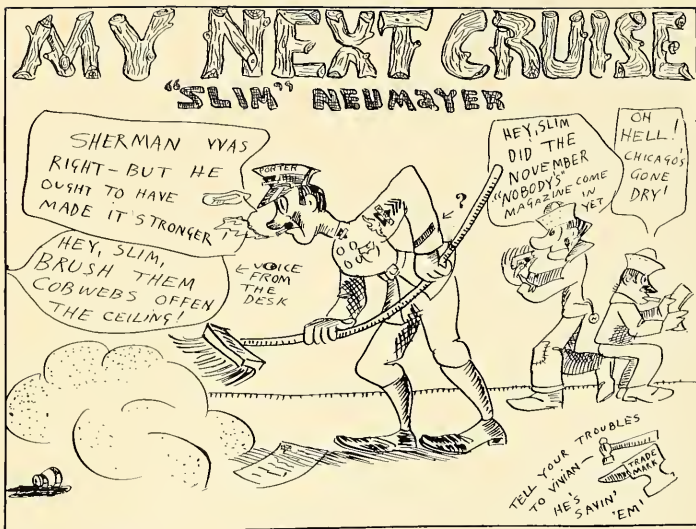 MY NEXT CRUISE
"SLIM" NEUMAYER
SHERMAN WAS
RIGHT - BUT HE
OUGHT TO HAVE
MADE IT STRONGER!
PORTER
HEY, SLIM,
BRUSH THEM
COBWEBS OFFEN
THE CEILING!
← VOICE
FROM
THE
DESK
?
HEY, SLIM
DID THE
NOVEMBER
"NOBODY'S" COME
MAGAZINE IN
YET
OH
HELL!
CHICAGO'S
GONE
DRY!
TELL YOUR TROUBLES
TO VIVIAN -
HE'S
SAVIN'
'EM!
TRADE
MARK